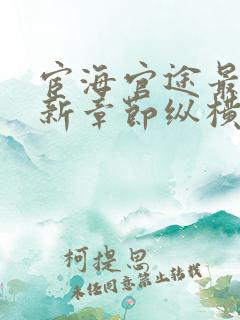 宦海官途最
新章节纵横
柯提思
未经同意禁止转载